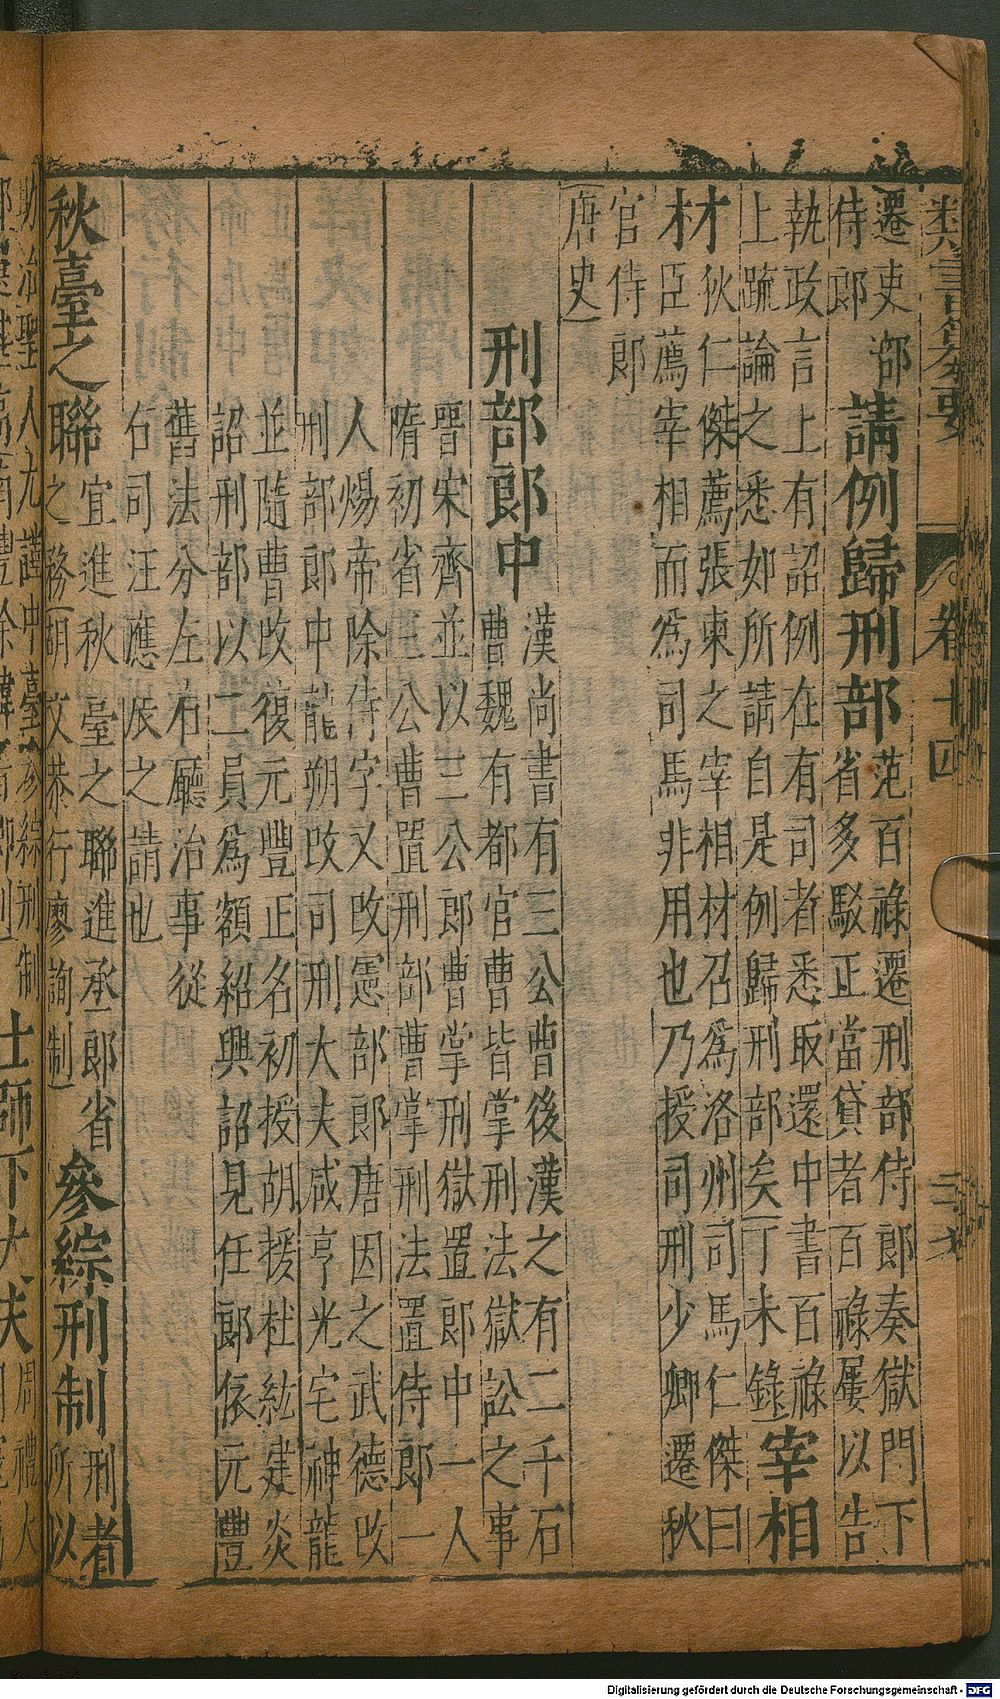 類書纂要
卷十四
遷吏部
侍郎
請例歸刑部
范百祿遷刑部侍郎奏獄門下
省多駁正當貸者百祿屢以告
執政言上有詔例在有司者悉取還中書百祿
上䟽論之悉如所請自是例歸刑部矣丁未錄
宰相
材
狄仁傑薦張柬之宰相材召爲洛州司馬仁傑曰
臣薦宰相而爲司馬非用也乃授司刑少卿遷秋
官侍郎
唐史
刑部郎中
漢尚書有三公曹後漢之有二千石
曹魏有都官曹皆掌刑法獄訟之事
晋宋齊並以三公郎曹掌刑獄置郎中一人
隋初省三公曹置刑部曹掌刑法置侍郎一
人煬帝除侍字又改憲部郎唐因之武德改
刑部郎中龍朔改司刑大夫咸亨光宅神龍
並隨曹改復元豐正名初授胡援杜紘建炎
詔刑部以二員爲額紹興詔見任郎依元豐
舊法分左右廳治事從
右司汪應辰之請也
秋臺之聯
宜進秋臺之聯進承郎省
之務胡文恭行廖詢制
參綜刑制
刑者
所以
助治聖人九謹中臺參綜刑制
士師下大夫
周禮
Digitalisierung gefördert durch die Deutsche Forschungsgemeinschaft - DFG